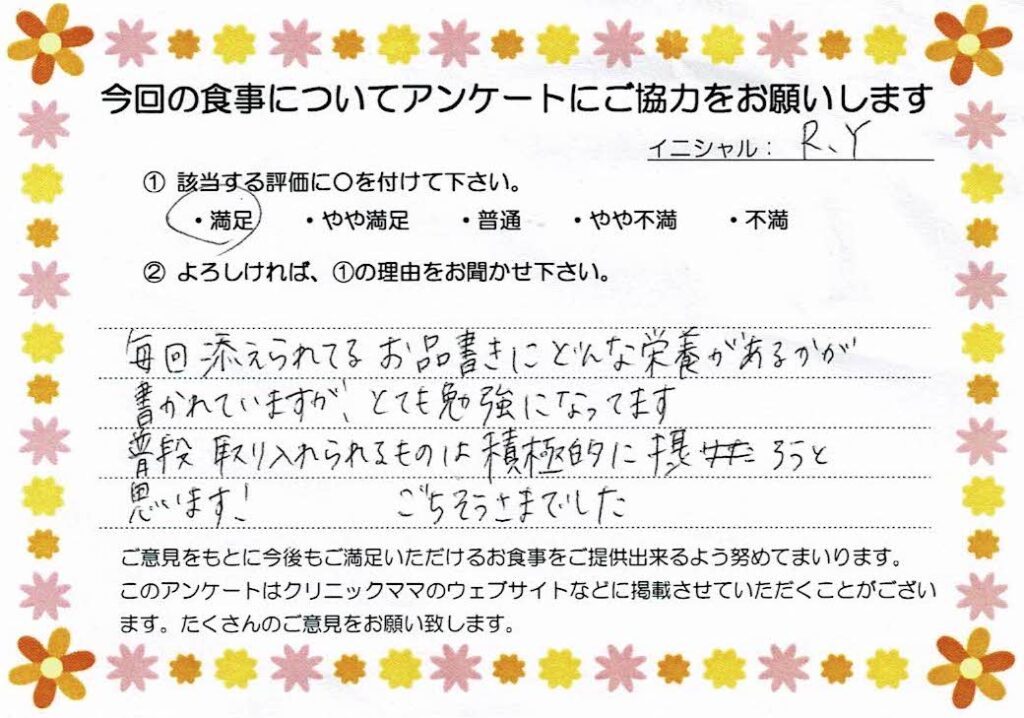 今回の食事についてアンケートにご協力をお願いします
イニシャル： R、Y
① 該当する評価に〇を付けて下さい。
・満足 ・やや満足 ・普通 ・やや不満 ・不満
② よろしければ、①の理由をお聞かせ下さい。
毎回添えられてるお品書きにどんな栄養があるかが
書かれていますが、とても勉強になってます
普段取り入れられるものは積極的に摂ろうと
思います! ごちそうさまでした
ご意見をもとに今後もご満足いただけるお食事をご提供出来るよう努めてまいります。
このアンケートはクリニックママのウェブサイトなどに掲載させていただくことがござい
ます。たくさんのご意見をお願い致します。